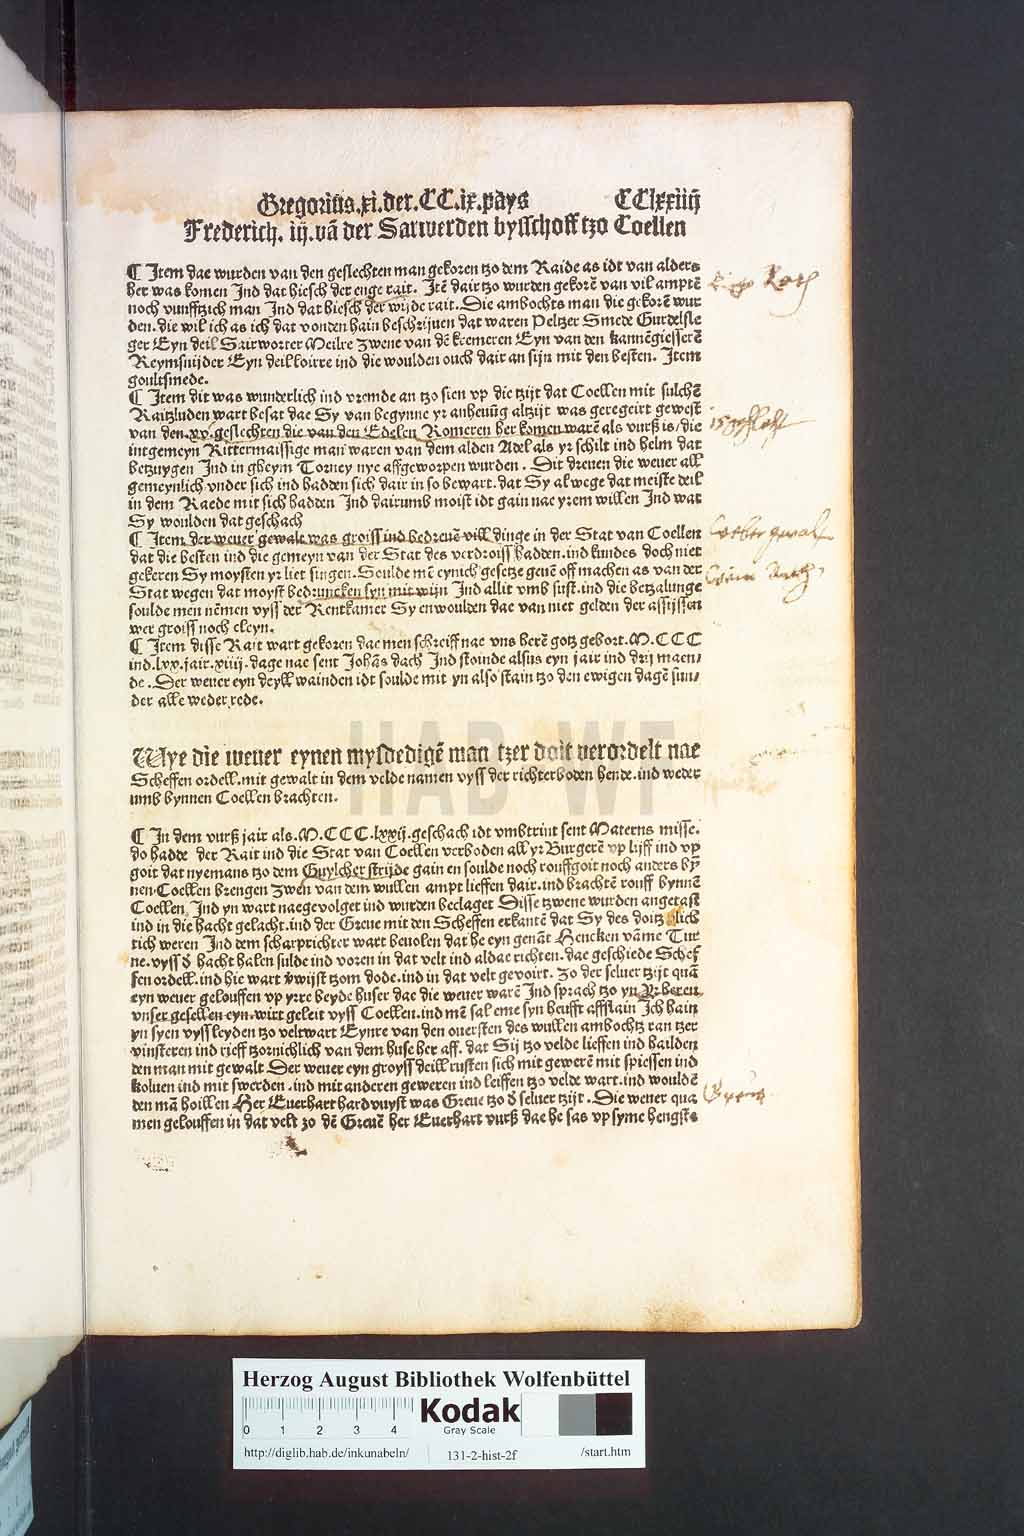 Gregorius.xi.der.CC.ix.pays CClxxiiij
Frederich. iij. vā der Sarwerden bysschoff tzo Coellen
¶ Item dae wurden van den geslechten man gekoren tzo dem Raide as idt van alders
her was komen Ind dat hiesch der enge rait. Itē dair tzo wurden gekorē van vil amptē
noch vunfftzich man Ind dat hiesch der wijde rait. Die ambochts man die gekorē wur
den. die wil ich as ich dat vonden hain beschrijuen dat waren Peltzer Smede Gurdelsle
ger Eyn deil Sairworter Meilre Zwene van dē kremeren Eyn van den kannēgiesserē
Reymsnijder Eyn deil loirre ind die woulden ouch dair an sijn mit den besten. Item
goultsmede.
¶ Item dit was wunderlich ind vremde an tzo sien vp die tzijt dat Coellen mit sulchē
Raitzluden wart besat dae Sy van begynne yr anheuūg altzijt was geregeirt gewest
van den .xv. geslechten die van den Edelen Romeren her komen warē als vurß is/die
intgemeyn Rittermaissige man waren van dem alden Adel als yr schilt ind helm dat
betzuygen Ind in gheym Torney nye affgeworpen wurden. Dit dreuen die weuer all
gemeynlich vnder sich ind hadden sich dair in so bewart. dat Sy alwege dat meiste deil
in dem Raede mit sich hadden Ind dairumb moist idt gain nae yrem willen Ind wat
Sy woulden dat geschach
¶ Item der weuer gewalt was groiss ind bedreuē vill dinge in der Stat van Coellen
dat die besten ind die gemeyn van der Stat des verdroiss hadden. ind kundes doch niet
gekeren Sy moysten yr liet singen. Soulde mē eynich gesetze geuē off machen as van der
Stat wegen dat moyst bedruncken syn mit wijn Ind allit vmb sust. ind die betzalunge
soulde men nēmen vyss der Rentkamer Sy enwoulden dae van niet gelden der assijssen
wer groiss noch cleyn.
¶ Item disse Rait wart gekoren dae men schreiff nae vns herē gotz gebort. M.CCC
ind. lxx. jair. xiiij. dage nae sent Johās dach Ind stoinde alsus eyn jair ind drij maen/
de. Der weuer eyn deyll wainden idt soulde mit yn also stain tzo den ewigen dagē sun/
der alle weder rede.
Wye die weuer eynen mysdedigē man tzer doit verordelt nae
Scheffen ordell. mit gewalt in dem velde namen vyss der richterboden hende. ind weder
umb bynnen Coellen brachten.
¶ In dem vurß jair als. M.CCC.lxxij. geschach idt vmbtrint sent Materns misse.
do hadde der Rait ind die Stat van Coellen verboden all yr Burgerē vp lijff ind vp
goit dat nyemans tzo dem Guylcher strijde gain en soulde noch rouffgoit noch anders bȳ
nen Coellen brengen Zwen van dem wullen ampt lieffen dair. ind brachtē rouff bynnē
Coellen Ind yn wart naegevolget ind wurden beclaget Disse tzwene wurden angetast
ind in die hacht gelacht. ind der Greue mit den Scheffen erkantē dat Sy des doitz
tich weren Ind dem scharprichter wart beuolen dat he eyn genāt Hencken vāme Tur
ne. vyss d hacht halen sulde ind voren in dat velt ind aldae richten. dae geschiede Schef
fen ordell. ind hie wart v̄wijst tzom dode. ind in dat velt gevoirt. Zo der seluer tzijt quā
eyn weuer gelouffen vp yrre beyde huser dae die weuer warē Ind sprach tzo yn Yr heren
vnser gesellen eyn wirt geleit vyss Coellen. ind mē sal eme syn heufft affslain Ich hain
yn syen vyss leyden tzo veltwart Eynre van den ouersten des wullen ambochtz ran tzer
vinsteren ind rieff tzornichlich van dem huse her aff. dat Sij tzo velde lieffen ind hailden
den man mit gewalt Der weuer eyn groyss deill rusten sich mit gewerē mit spiessen ind
koluen ind mit swerden. ind mit anderen geweren ind leiffen tzo velde wart. ind wouldē
den mā hoillen Her Euerhart hardvuyst was Greue tzo d seluer tzijt. Die weuer qua
men gelouffen in dat velt zo dē Greuē her Euerhart vurß dae he sas vp syme hengste
HAB WF
Herzog August Bibliothek Wolfenbüttel
0 1 2 3 4
Kodak
Gray Scale
http://diglib.hab.de/inkunabeln/ 131-2-hist-2f /start.htm